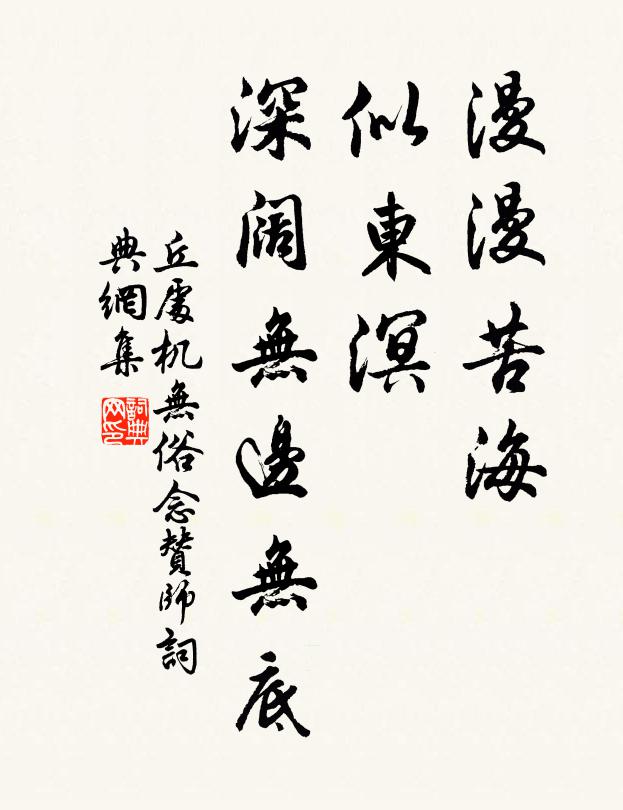 漫漫苦海
似東溟
深闊無邊無底
丘處机無俗念賛師詞
典網集
詞典網印